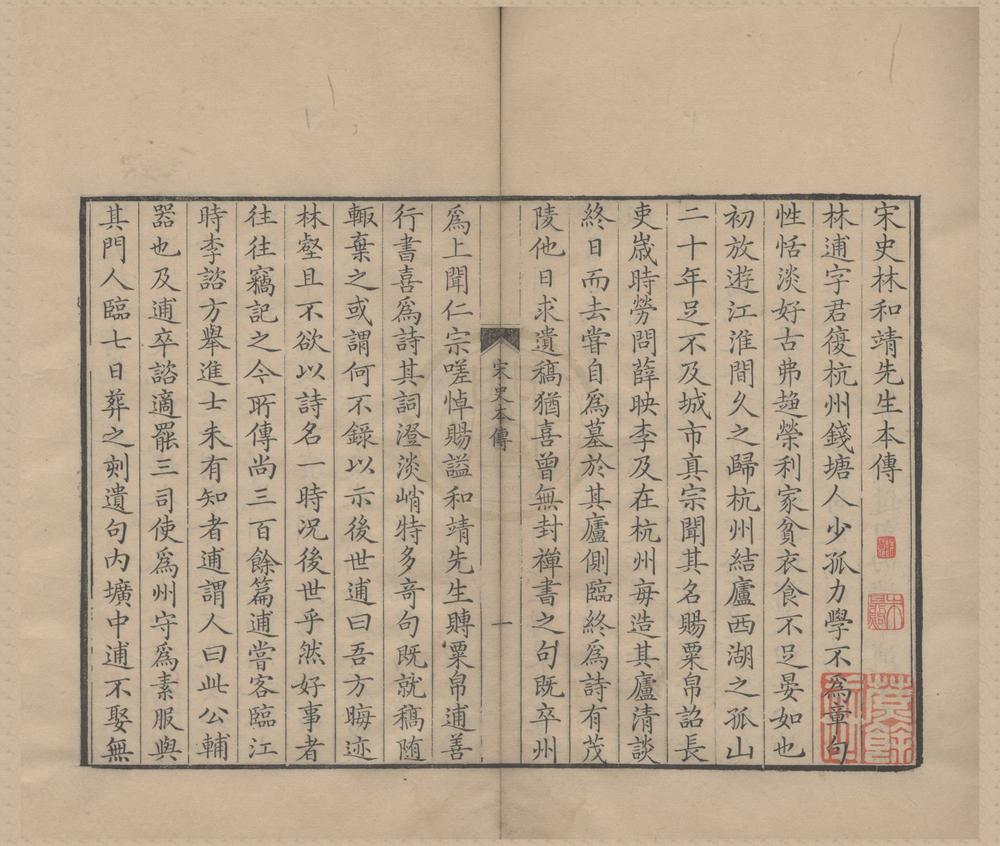 宋史林和靖先生本傳
林逋字君復杭州錢塘人少孤力學不為章句
性恬淡好古弗趨榮利家貧衣食不足晏如也
初放遊江淮間久之歸杭州結廬西湖之孤山
二十年足不及城市真宗聞其名賜粟帛詔長
吏歲時勞問薛映李及在杭州每造其廬清談
終日而去甞自爲墓於其廬側臨終爲詩有茂
陵他日求遺稿猶喜曾無封禪書之句既卒州
宋史本傳
一
爲上聞仁宗嗟悼賜謚和靖先生賻粟帛逋善
行書喜爲詩其詞澄淡峭特多竒句既就稿随
輙棄之或謂何不錄以示後世逋曰吾方晦迹
林壑且不欲以詩名一時况後世乎然好事者
往往竊記之今所傳尚三百餘篇逋嘗客臨江
時李諮方舉進士未有知者逋謂人曰此公輔
器也及逋卒諮適罷三司使爲州守爲素服與
其門人臨七日葬之刻遺句内壙中逋不娶無